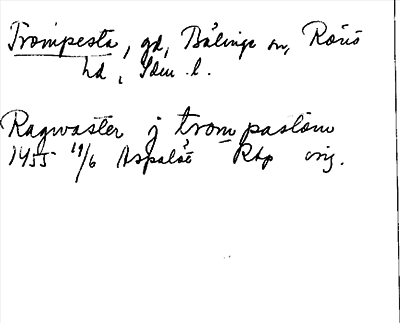 Trompesta, gd, Bälinge sn, Rönö
hd, Sdm. l.
Ragwaster j trompastom
1455 19/6 Aspalöt Rap orig.